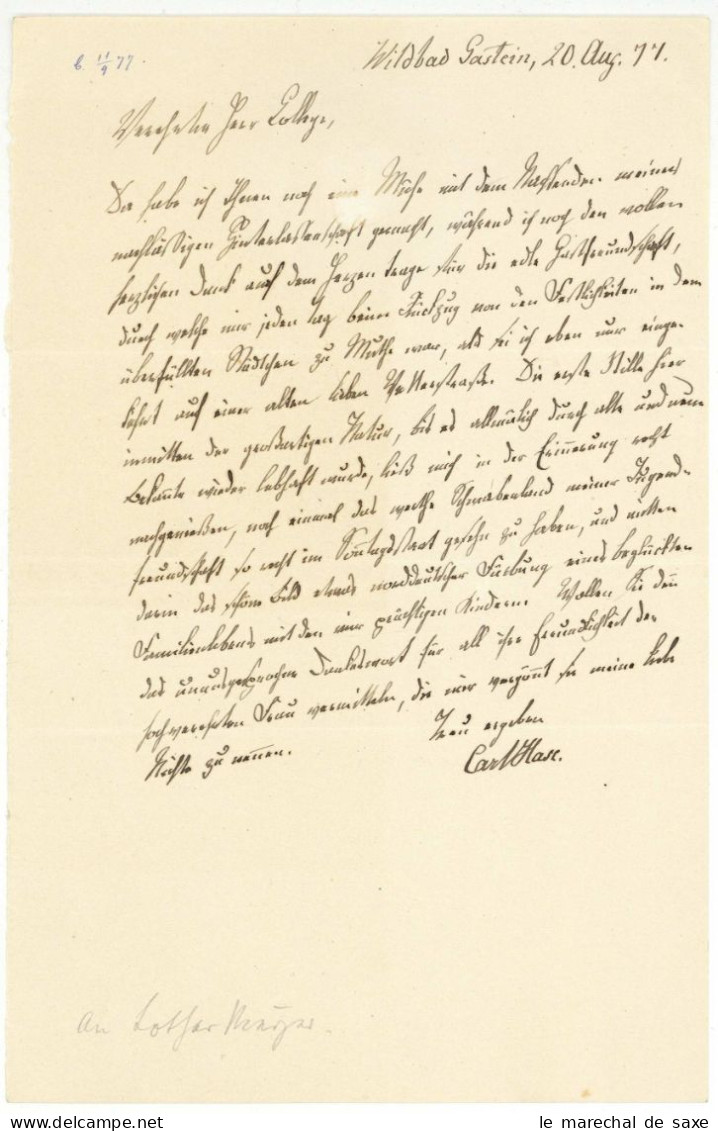 b. 11/9 77.
Wildbad Gastein, 20. Aug. 77.
Verehrter Herr College,
Da habe ich Ihnen noch eine Mühe mit dem Nachsenden meiner
nachlässigen Hinterlassenschaft gemacht, während ich noch den vollen
herzlichen Dank auf dem Herzen trage für die edle Gastfreundschaft,
durch welche mir jeden Tag beim Rückzug von den Festlichkeiten in dem
überfüllten Städtchen zu Muthe war, als sei ich eben nur einge-
kehrt auf einer alten lieben Vetterstraße. Die erste Stille hier
inmitten der großartigen Natur, bis es allmälich durch alte und neue
Bekannte wieder lebhaft wurde, ließ mich in der Erinnerung recht
nachgenießen, noch einmal das werthe Schwabenland meiner Jugend-
freundschaft so recht im Sonntagsstaat gesehn zu haben, und mitten
darin das schöne Bild etwas norddeutscher Färbung eines beglückten
Familienlebens mit den vier prächtigen Kindern. Wollen Sie denn
das unausgesprochne Dankeswort für all ihre Freundlichkeit der
hochverehrten Frau vermitteln, die mir vergönnt sie meine liebe
Nichte zu nennen.
Treu ergeben
Carl Hase.
An Lothar Meyer.
le marechal de saxe